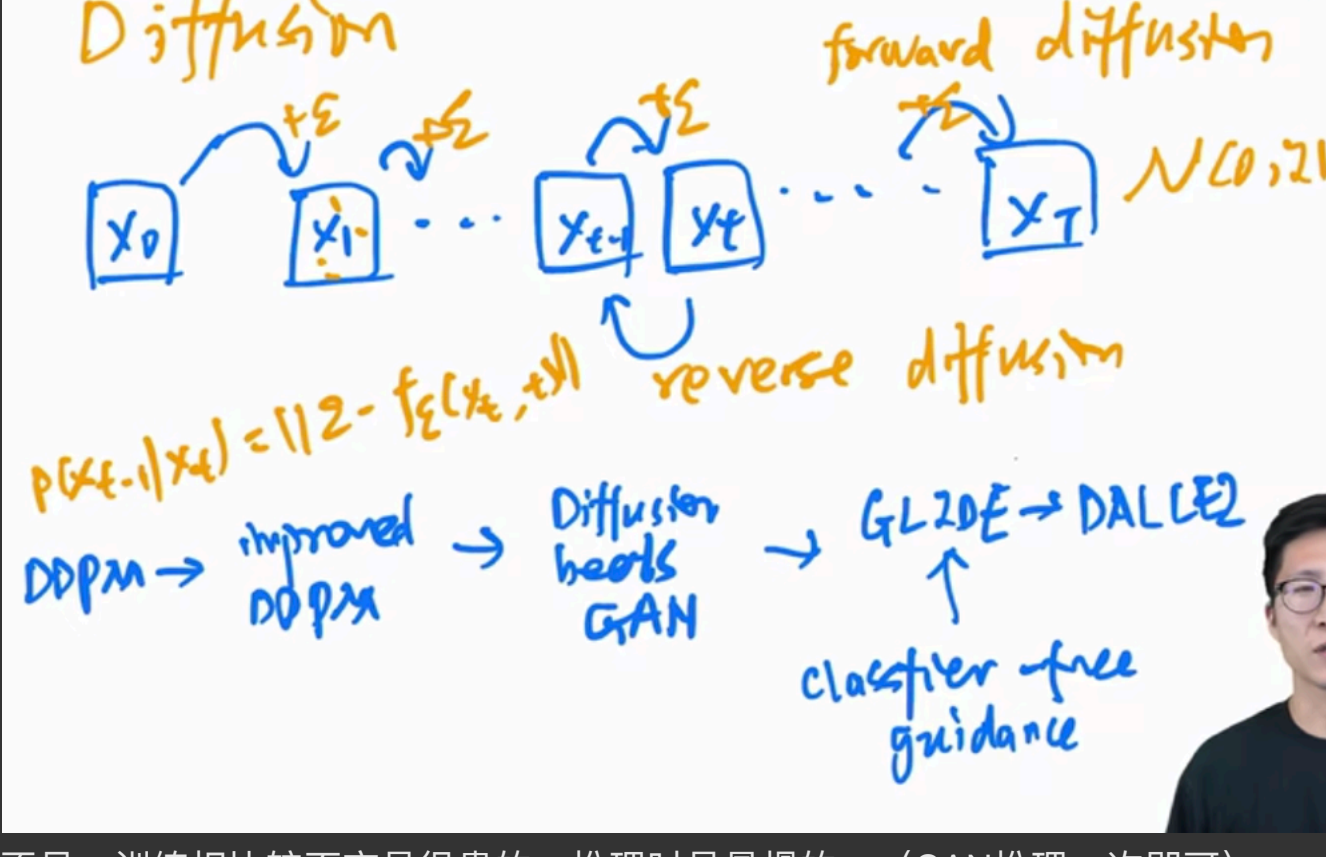 Diffusion
forward diffusion
+ε +ε +ε +ε
X₀ X₁ ... Xₜ₋₁ Xₜ ..... X_T N(0,I
reverse diffusion
p(Xₜ₋₁|Xₜ) = ||ε - fε(Xₜ,t)||
DDPM → improved DDPM → Diffusion beats GAN → GLIDE → DALLE2
↑
classfier-free
guidance